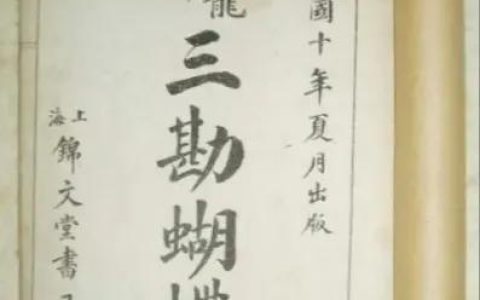 國十年夏月出版
龍三勘蝴蝶
上海錦文堂書